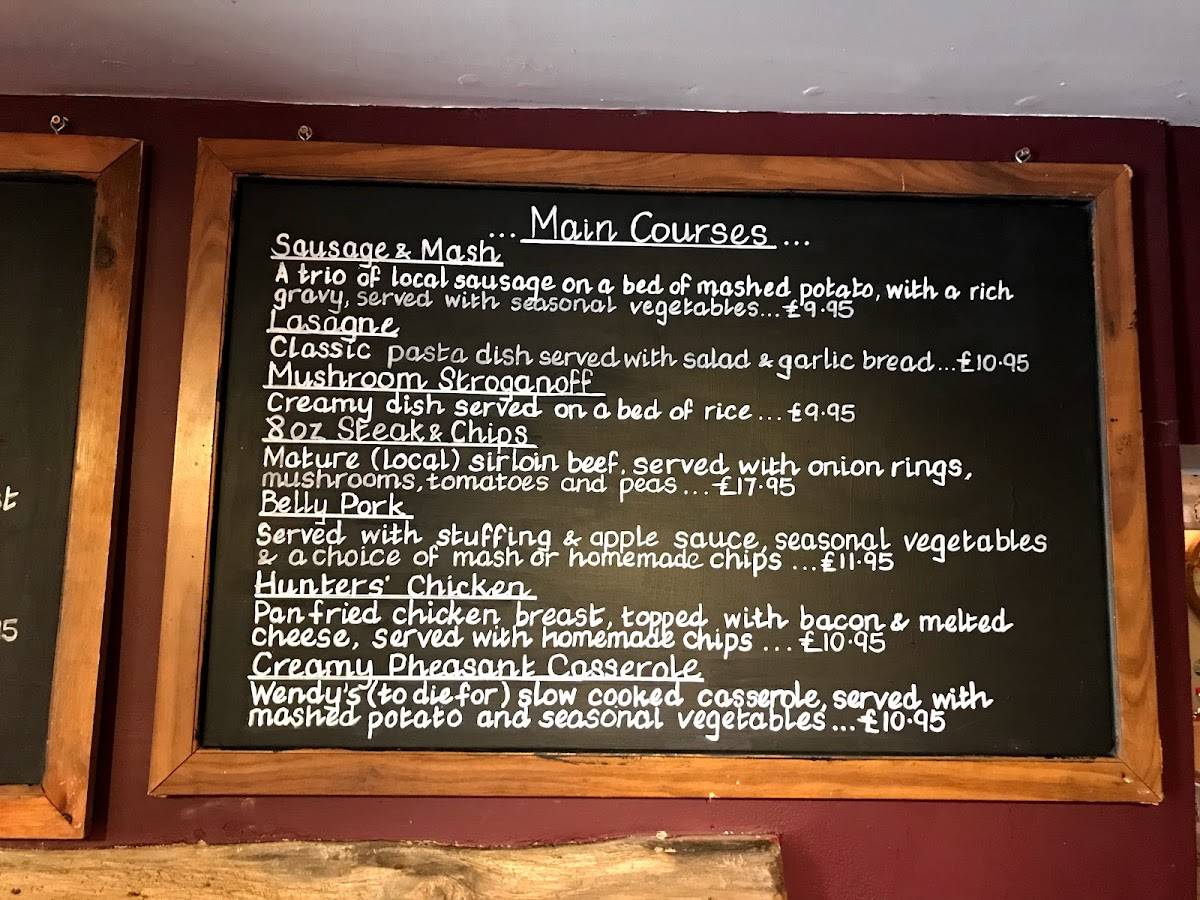 ... Main Courses ...
Sausage & Mash
A trio of local sausage on a bed of mashed potato, with a rich
gravy, served with seasonal vegetables... £9.95
Lasagne
Classic pasta dish served with salad & garlic bread... £10.95
Mushroom Stroganoff
Creamy dish served on a bed of rice ... £9.95
8oz Steak & Chips
Mature (local) sirloin beef, served with onion rings,
mushrooms, tomatoes and peas ... £17.95
Belly Pork
Served with stuffing & apple sauce, seasonal vegetables
& a choice of mash or homemade chips ... £11.95
Hunters' Chicken
Pan fried chicken breast, topped with bacon & melted
cheese, served with homemade chips ... £10.95
Creamy Pheasant Casserole
Wendy's (to die for) slow cooked casserole, served with
mashed potato and seasonal vegetables ... £10.95